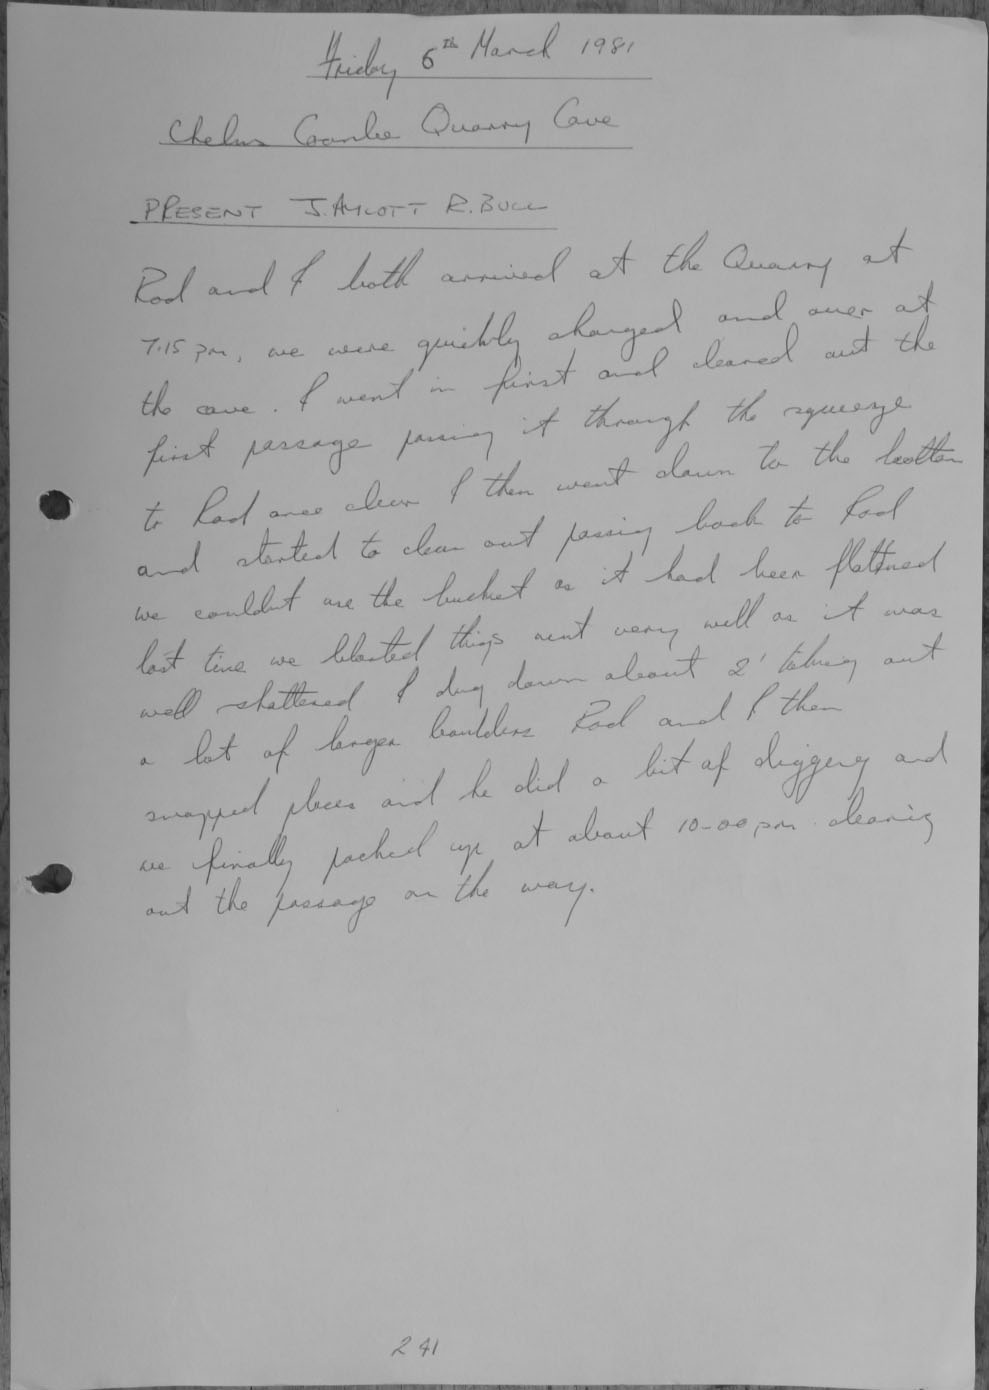 Friday 6th March 1981
Chelms Coombe Quarry Cave
PRESENT J. AYLOTT R. BULL
Rod and I both arrived at the Quarry at
7.15 pm, we were quickly changed and over at
the cave. I went in first and cleared out the
first passage passing it through the squeeze
to Rod once clear I then went down to the bottom
and started to clear out passing back to Rod
we couldnt use the bucket as it had been flattned
last time we blasted things went very well as it was
well shattered I dug down about 2' taking out
a lot of larger boulders Rod and I then
swapped places and he did a bit of digging and
we finally packed up at about 10-00 pm clearing
out the passage on the way.
241